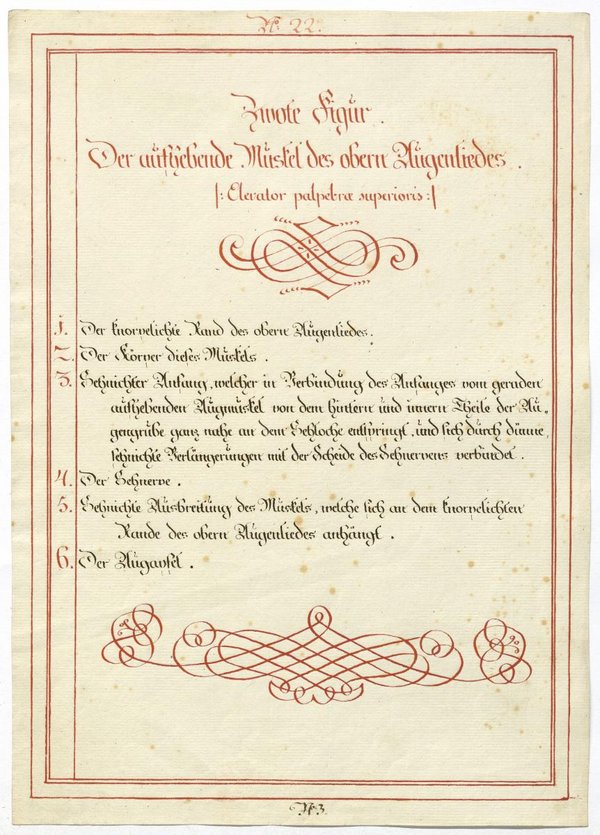 N: 22.
Zwote Figur.
Der aufhebende Muskel des obern Augenliedes.
|: Elevator palpebræ superioris :|
1. Der knorpelichte Rand des obern Augenliedes.
2. Der Körper dieses Muskels.
3. Sehnichter Anfang, welcher in Verbindung des Anfanges vom geraden
aufhebenden Augmuskel von dem hintern und innern Theile der Au,
gengrube ganz nahe an dem Sehloche entspringt, und sich durch dünne,
sehnichte Verlängerungen mit der Scheide des Sehnervens verbindet.
4. Der Sehnerve.
5. Sehnichte Ausbreitung des Muskels, welche sich an dem knorpelichten
Rande des obern Augenliedes anhängt.
6. Der Augapfel.